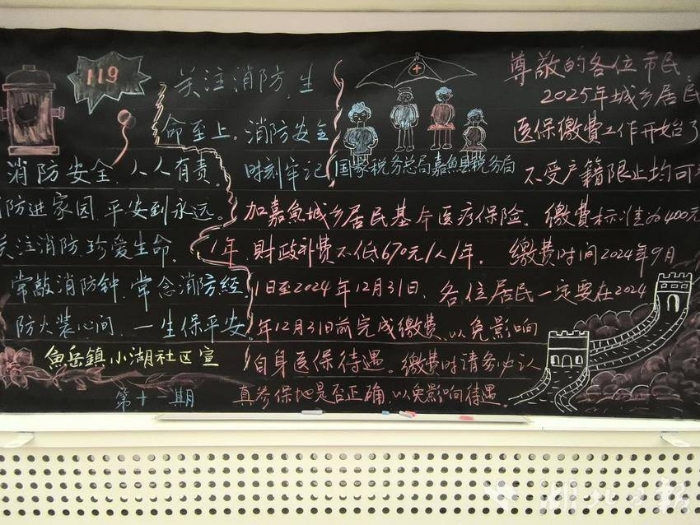 119
关注消防,生
命至上,消防安全
时刻牢记
消防安全,人人有责。
消防进家园,平安到永远。
关注消防,珍爱生命。
常敲消防钟,常念消防经
防火装心间,一生保平安。
魚岳鎮小湖社区宣
第十二期
尊敬的各位市民
2025年城乡居民
医保缴费工作开始了
国家税务总局嘉鱼县税务局
不受户籍限止均可
加嘉鱼城乡居民基本医疗保险,缴费标准为400
1年,财政补费不低670元/人/年。缴费时间2024年9月
1日至2024年12月31日,各位居民一定要在2024
年12月31日前完成缴费,以免影响
自身医保待遇。缴费时请务必认
真参保地是否正确,以免影响待遇。